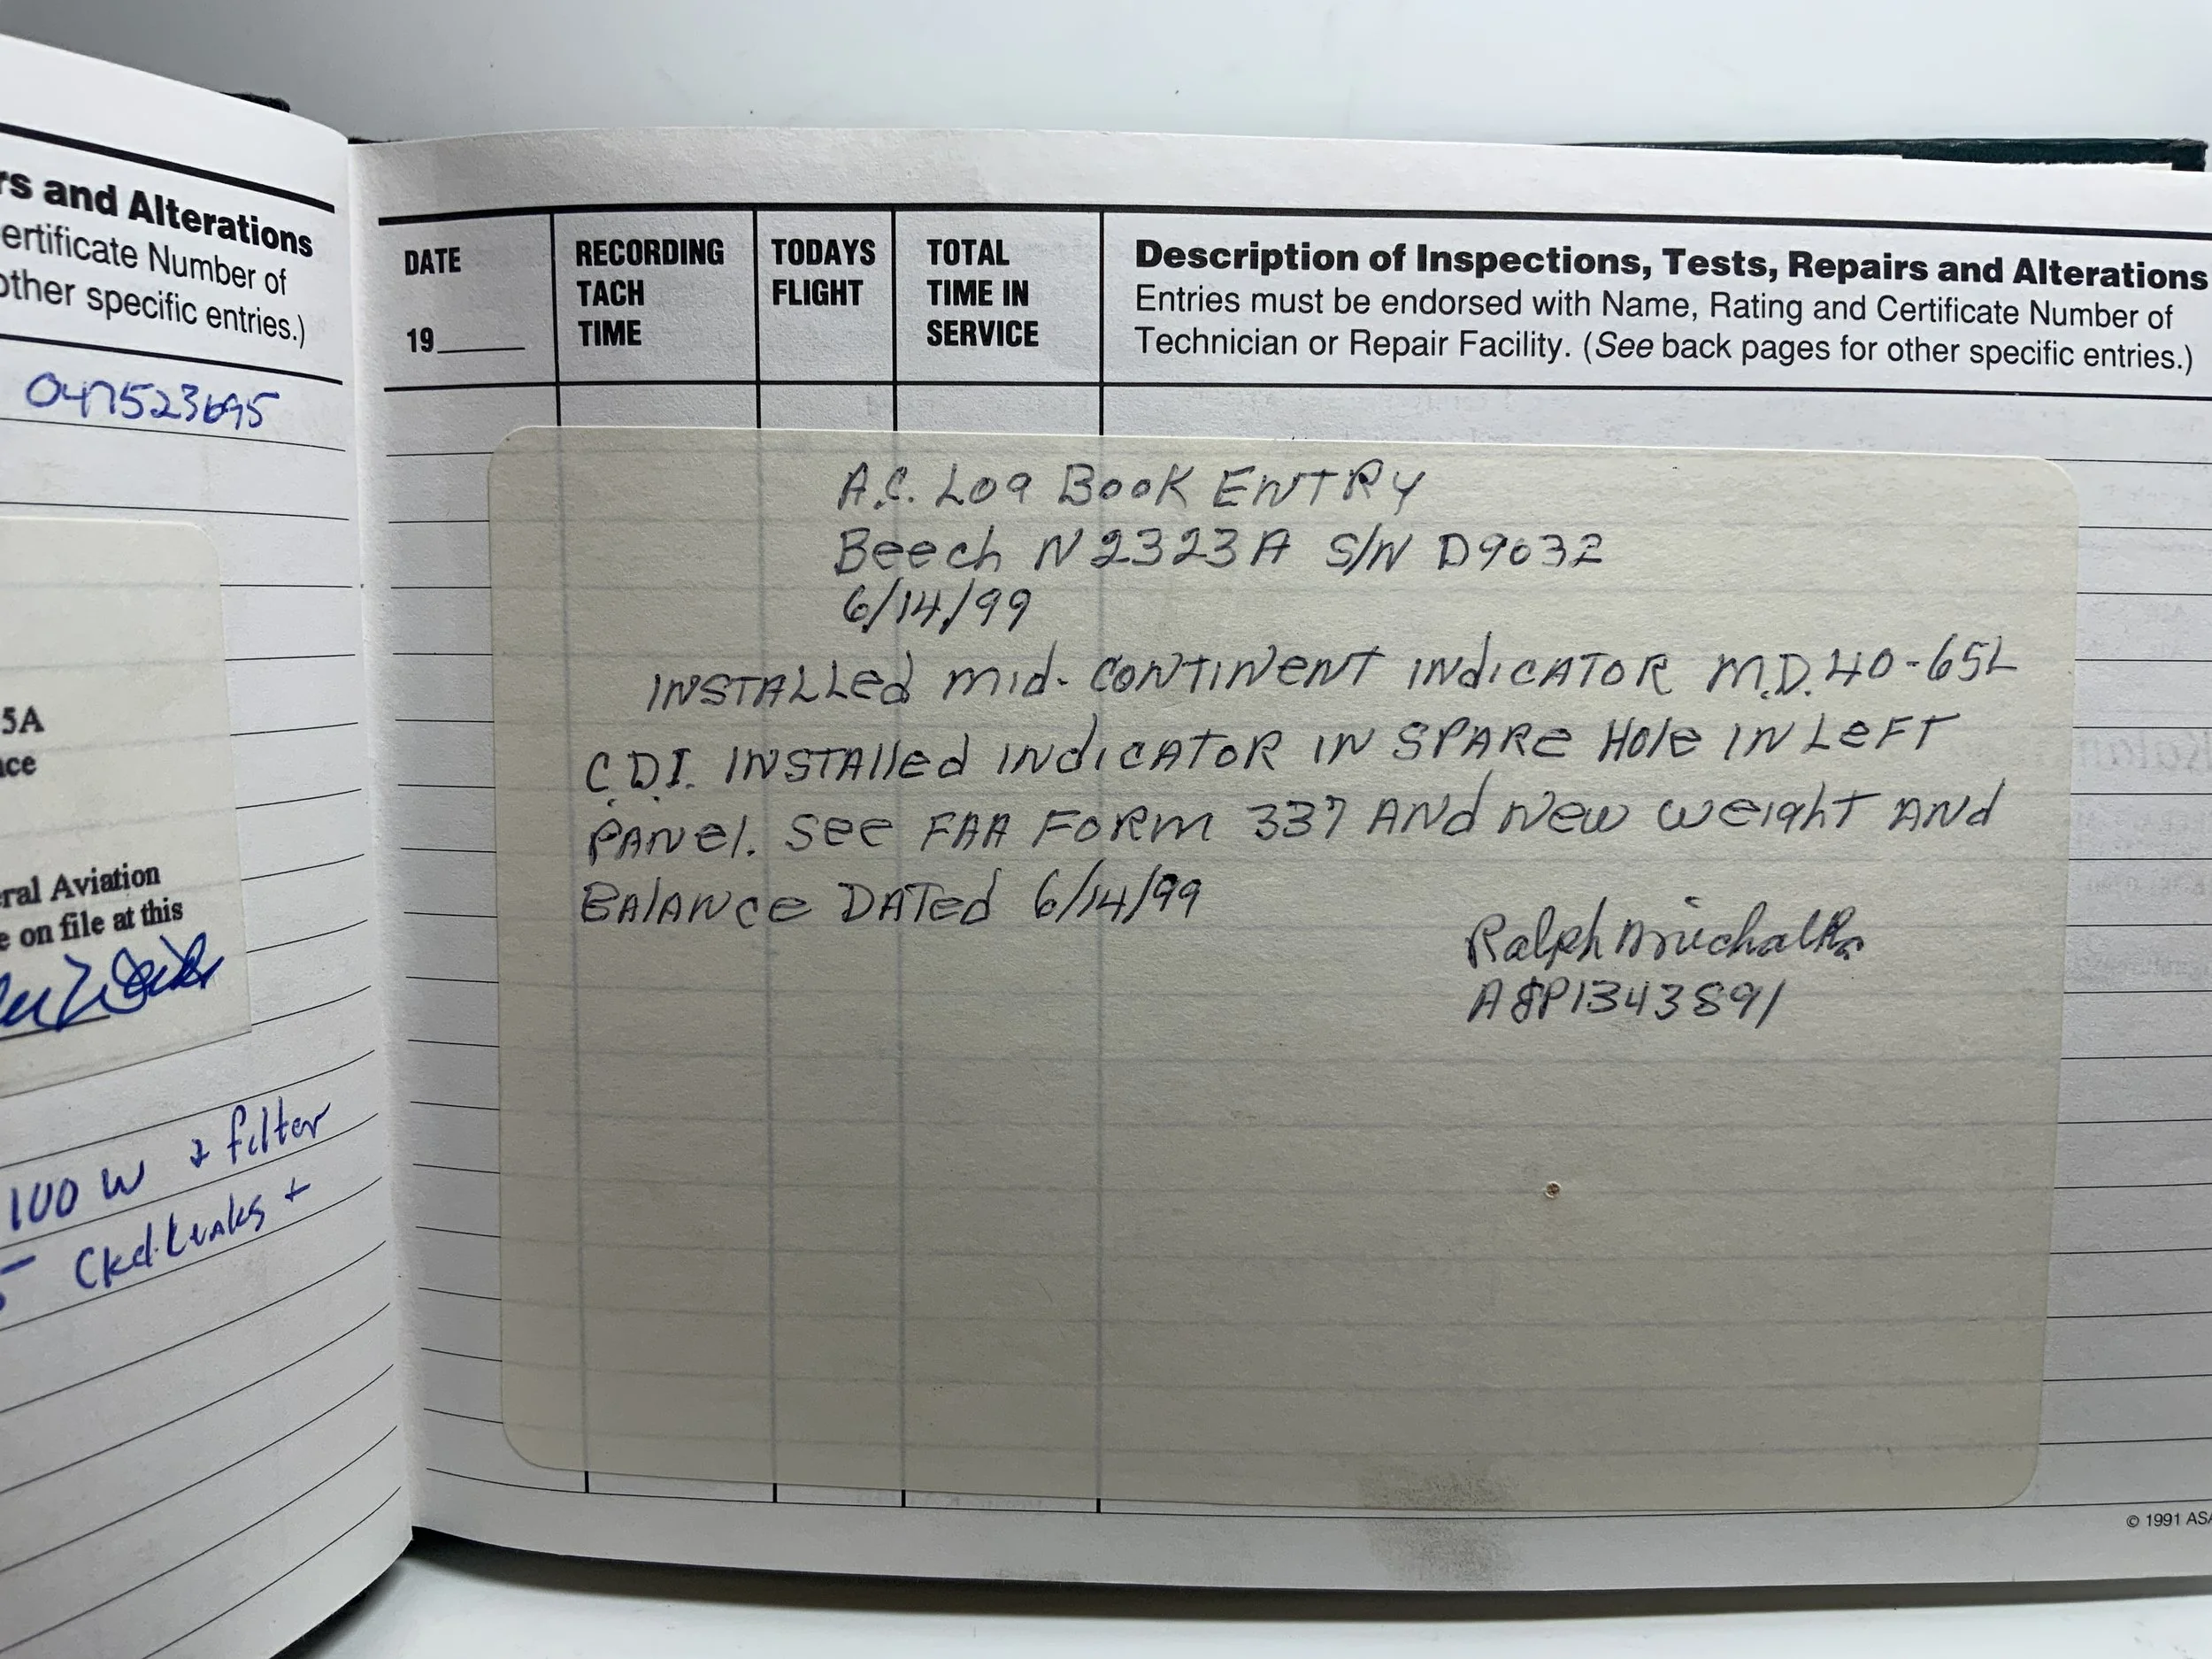 rs and Alterations
ertificate Number of
other specific entries.)
047523695
5A
ce
eral Aviation
e on file at this
100 W & filter
Ckd. Leaks +
DATE
19____
RECORDING
TACH
TIME
TODAYS
FLIGHT
TOTAL
TIME IN
SERVICE
Description of Inspections, Tests, Repairs and Alterations
Entries must be endorsed with Name, Rating and Certificate Number of
Technician or Repair Facility. (See back pages for other specific entries.)
A.C. Log Book ENTRY
Beech N2323A S/N D9032
6/14/99
INSTALLed mid-CONTINENT INdICATOR M.D.40-65L
C.D.I. INSTAlled INdICATOR IN SPARe Hole IN LeFT
PANel. See FAA FORM 337 ANd New weighT ANd
BAlANce DATed 6/14/99
Ralph
A&P1343891
© 1991 ASA